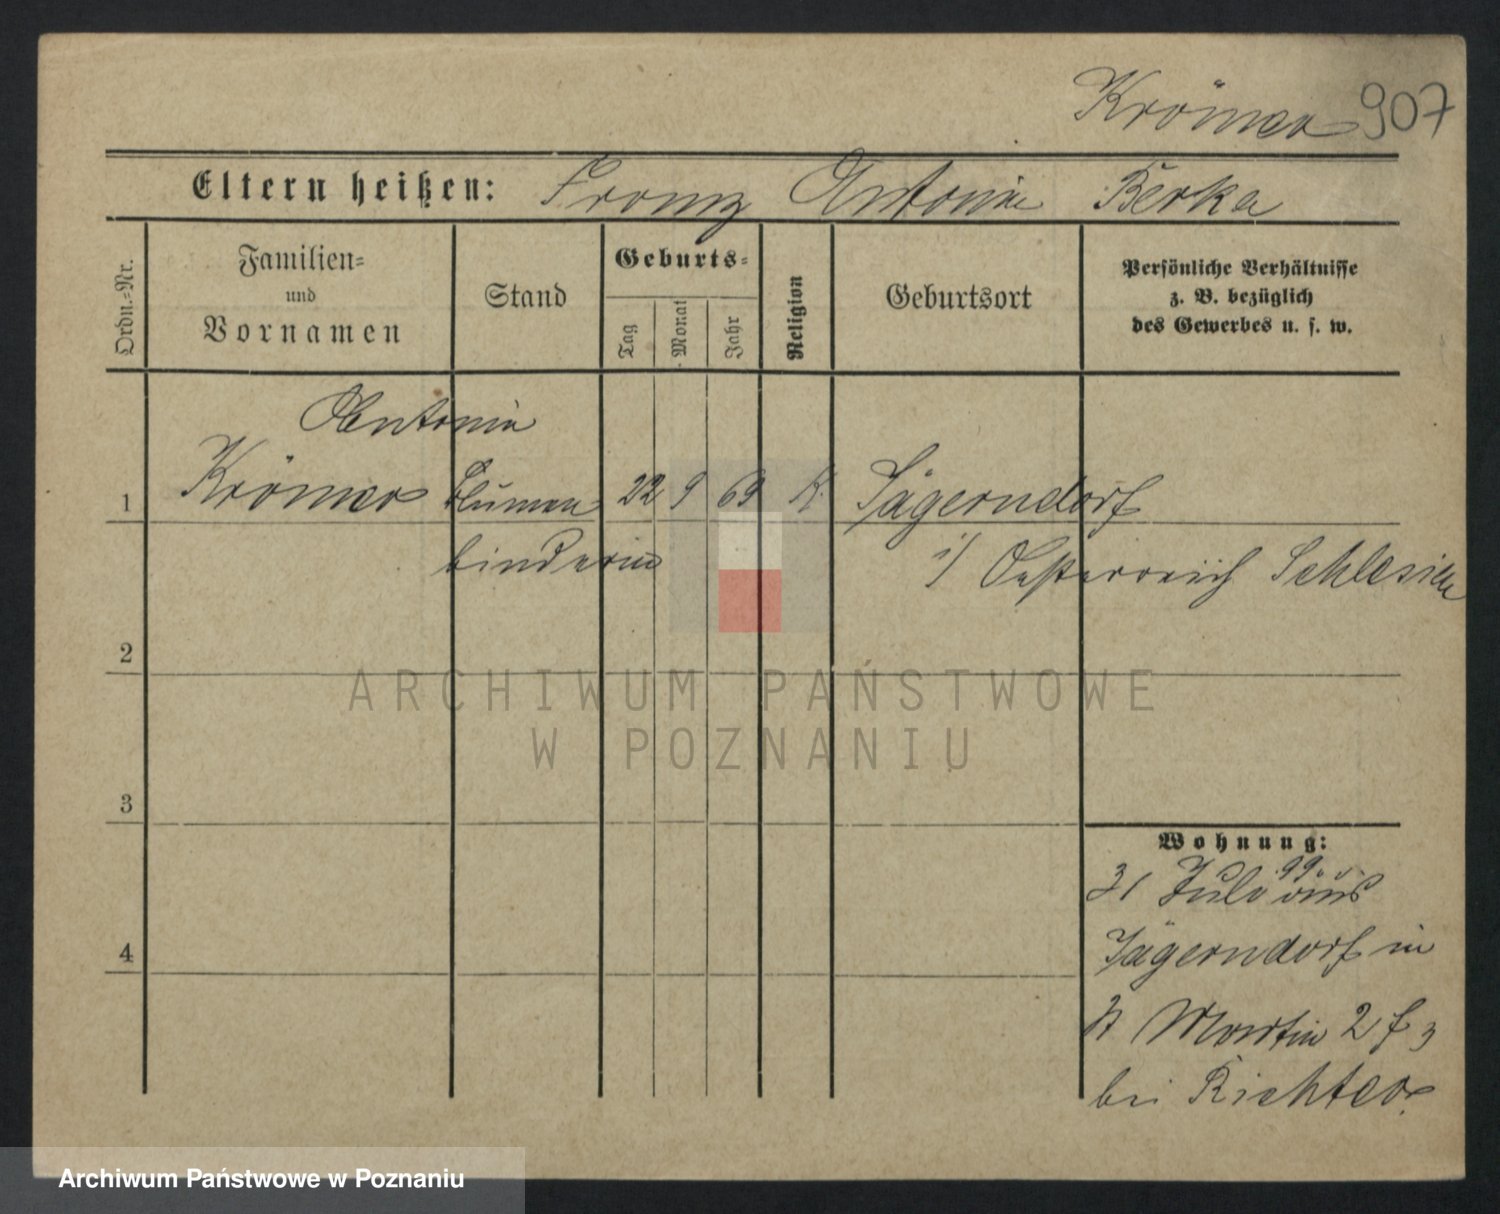 Krömer 907
Eltern heißen: Franz Antonie Berka
Ordn.=Nr.
Familien=
und
Vornamen
Stand
Geburts=
Tag
Monat
Jahr
Religion
Geburtsort
Persönliche Verhältnisse
z. B. bezüglich
des Gewerbes u. s. w.
Antonie
1 Krömer Blumen 22 9 69 K. Jägerndorf
binderin i/ Oesterreich Schlesien
2
3
4
Wohnung:
31 Juli 99 aus
Jägerndorf in
St Martin 2
bei Richter.
ARCHIWUM PAŃSTWOWE
W POZNANIU
Archiwum Państwowe w Poznaniu